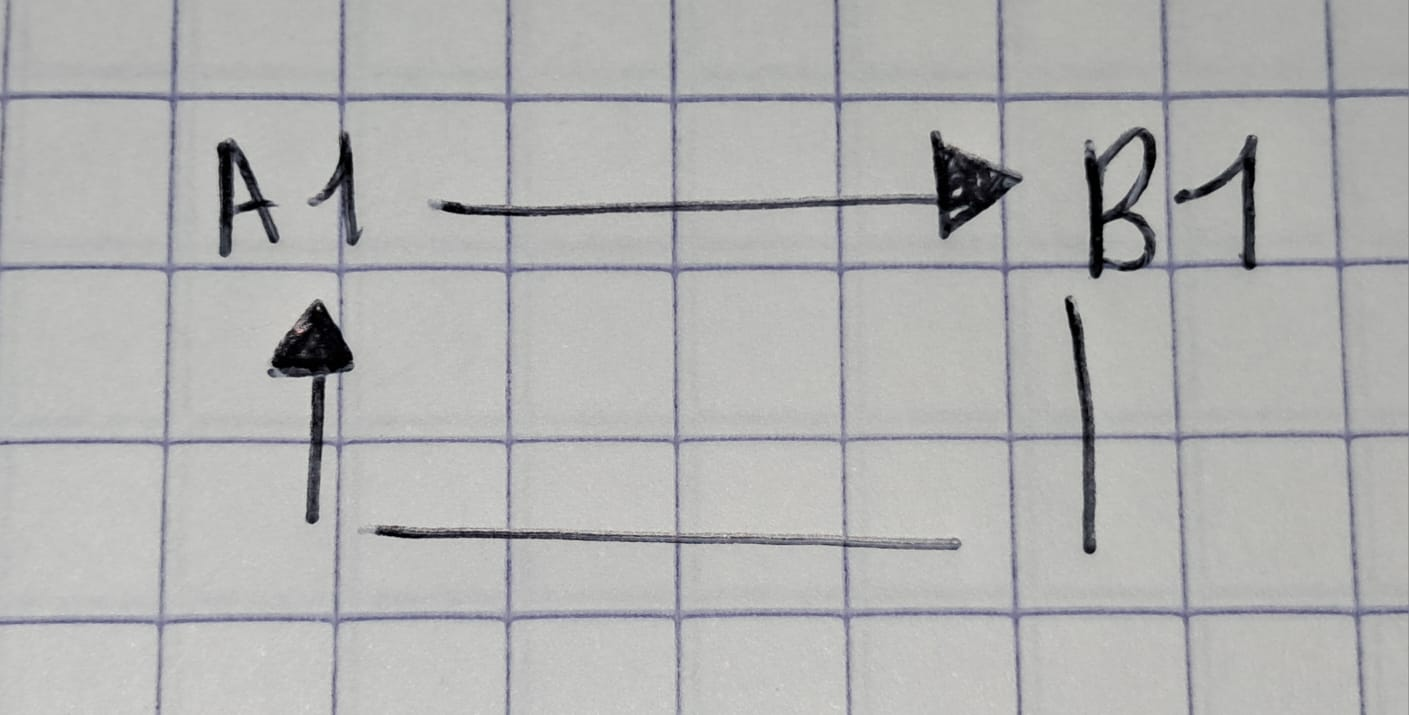 A1 B1